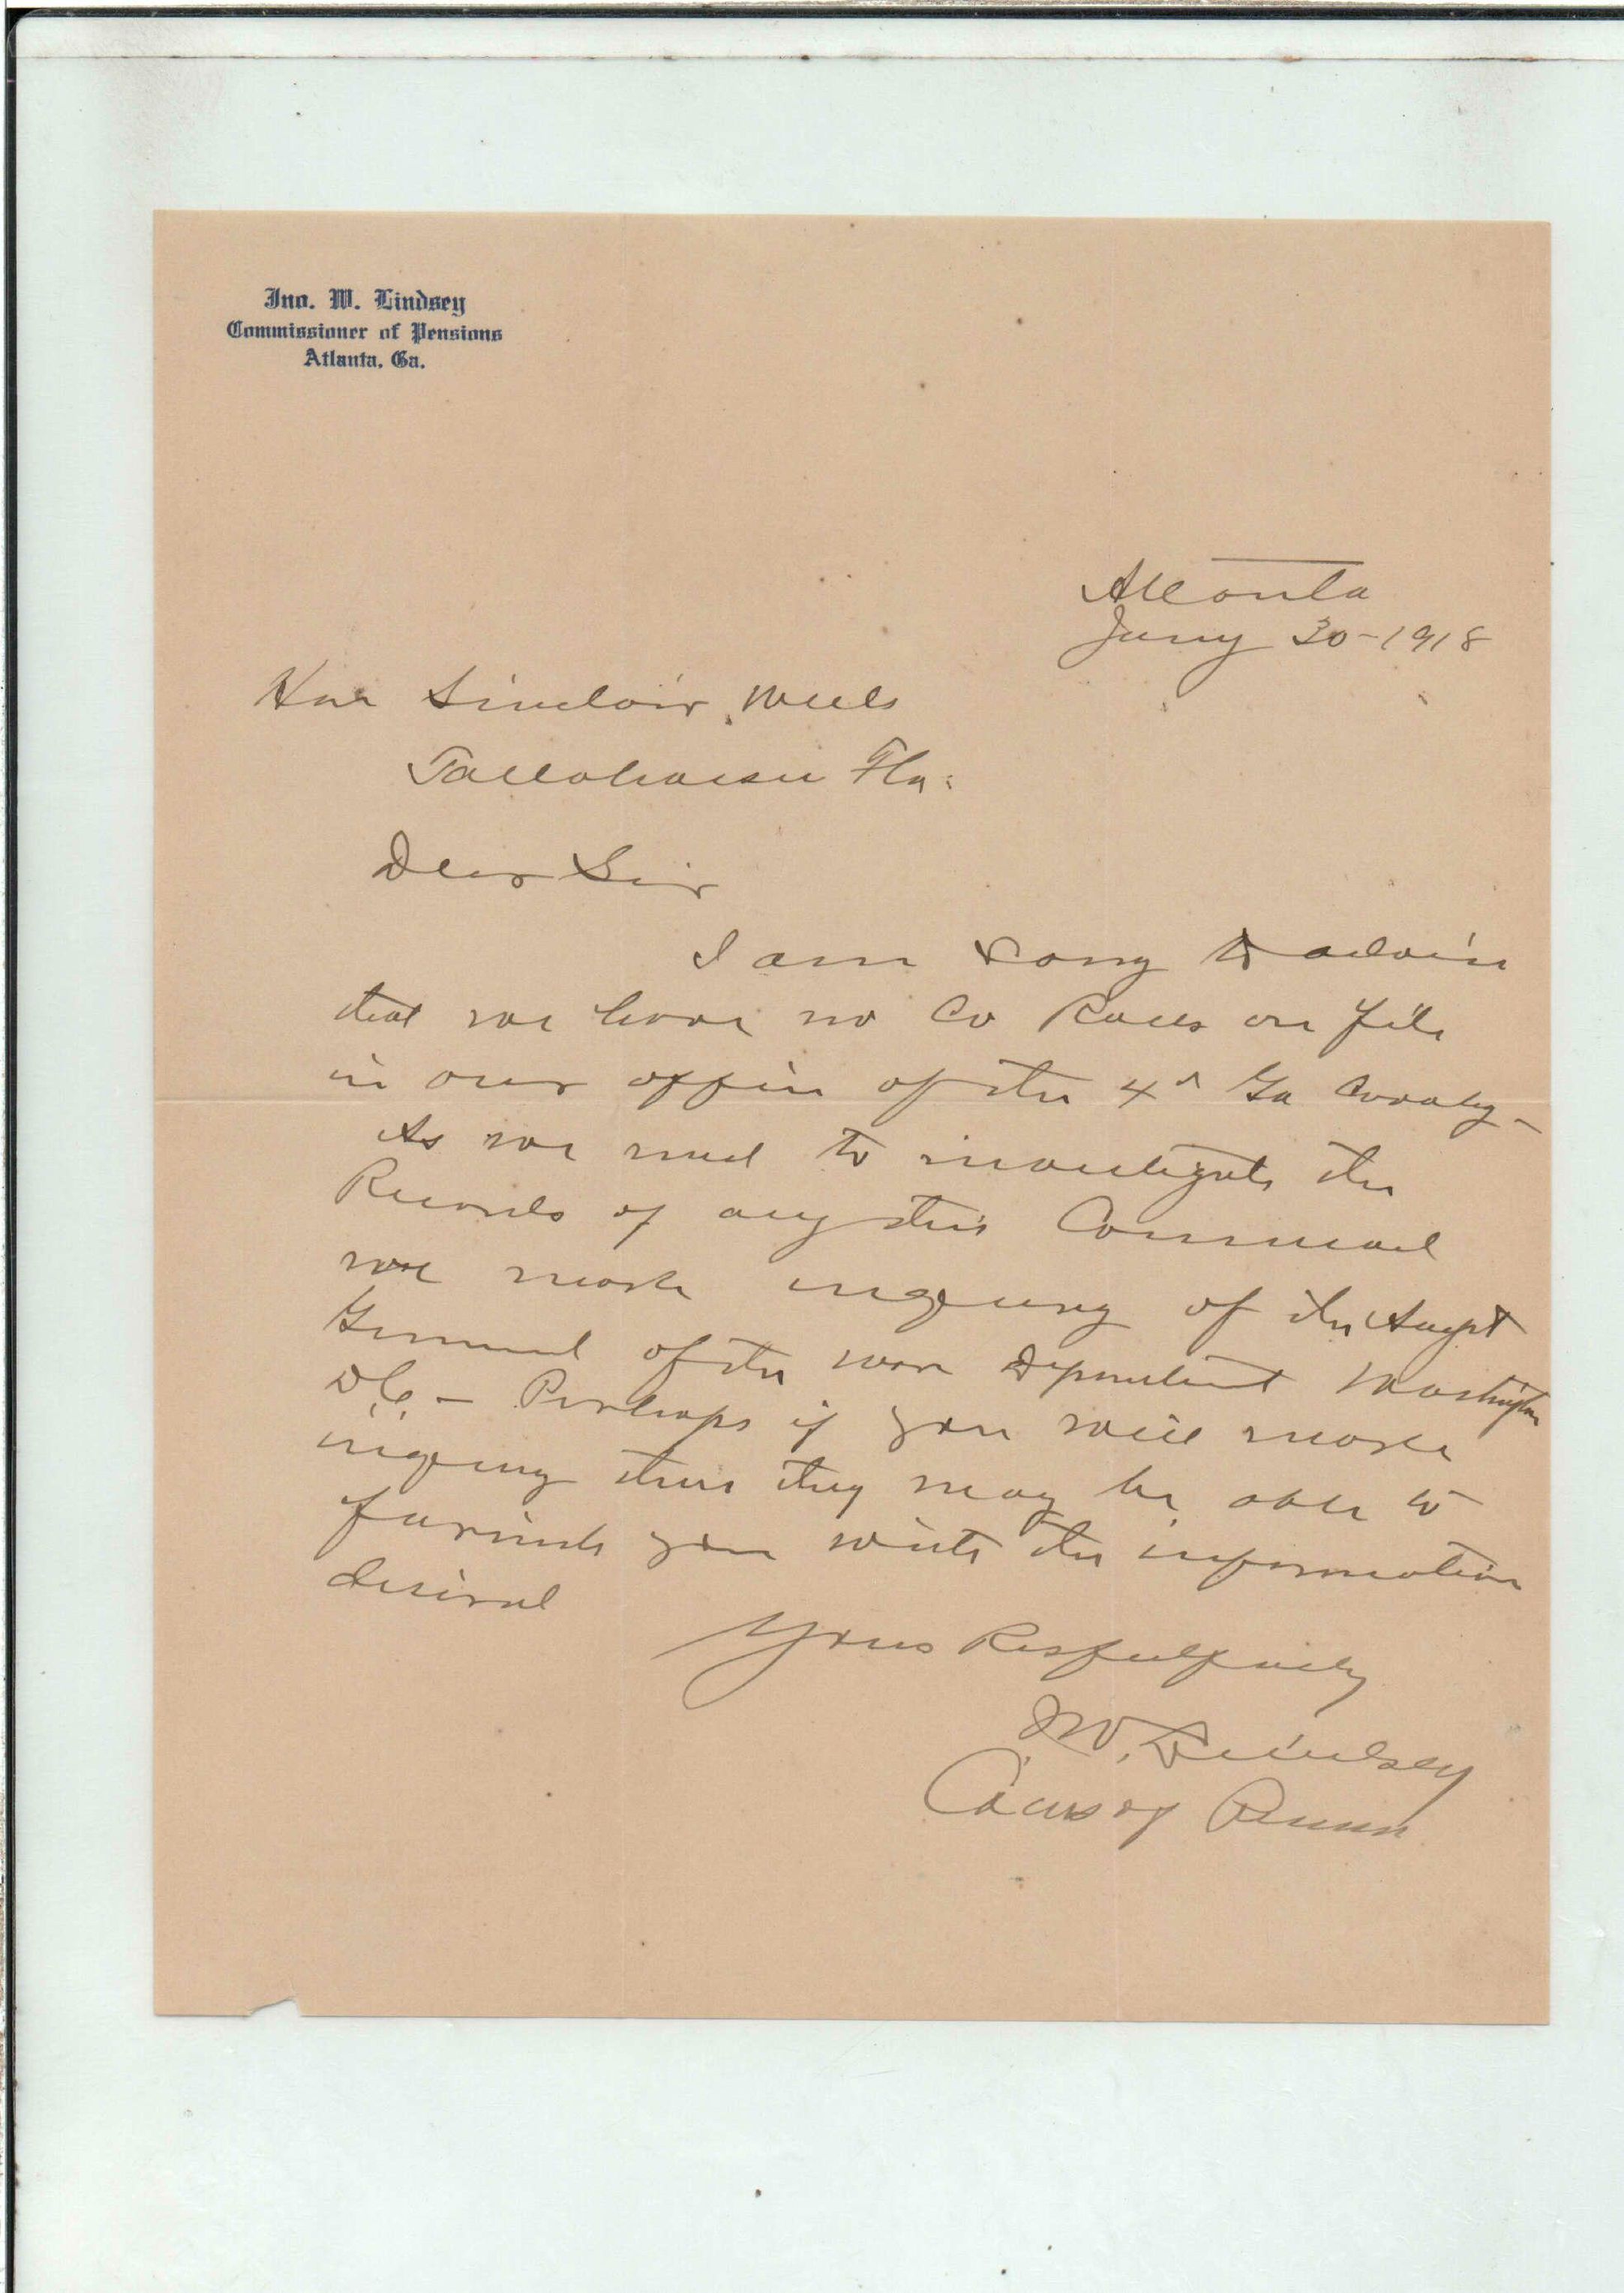 Jno. W. Lindsey
Commissioner of Pensions
Atlanta, Ga.
Atlanta
Jany 30-1918
Hon Sinclair Wells
Tallahassee Fla.
Dear Sir
I am sorry to advise
that we have no Co Rolls on file
in our office of the 4th Ga Cavalry-
As we need to investigate the
Records of any this Command
we make inquiry of the
General of the War Department Washington
D.C. - Perhaps if you will make
inquiry there they may be able to
furnish you with the information
desired
Yours Respectfully
J.W. Lindsey
Com of Penns